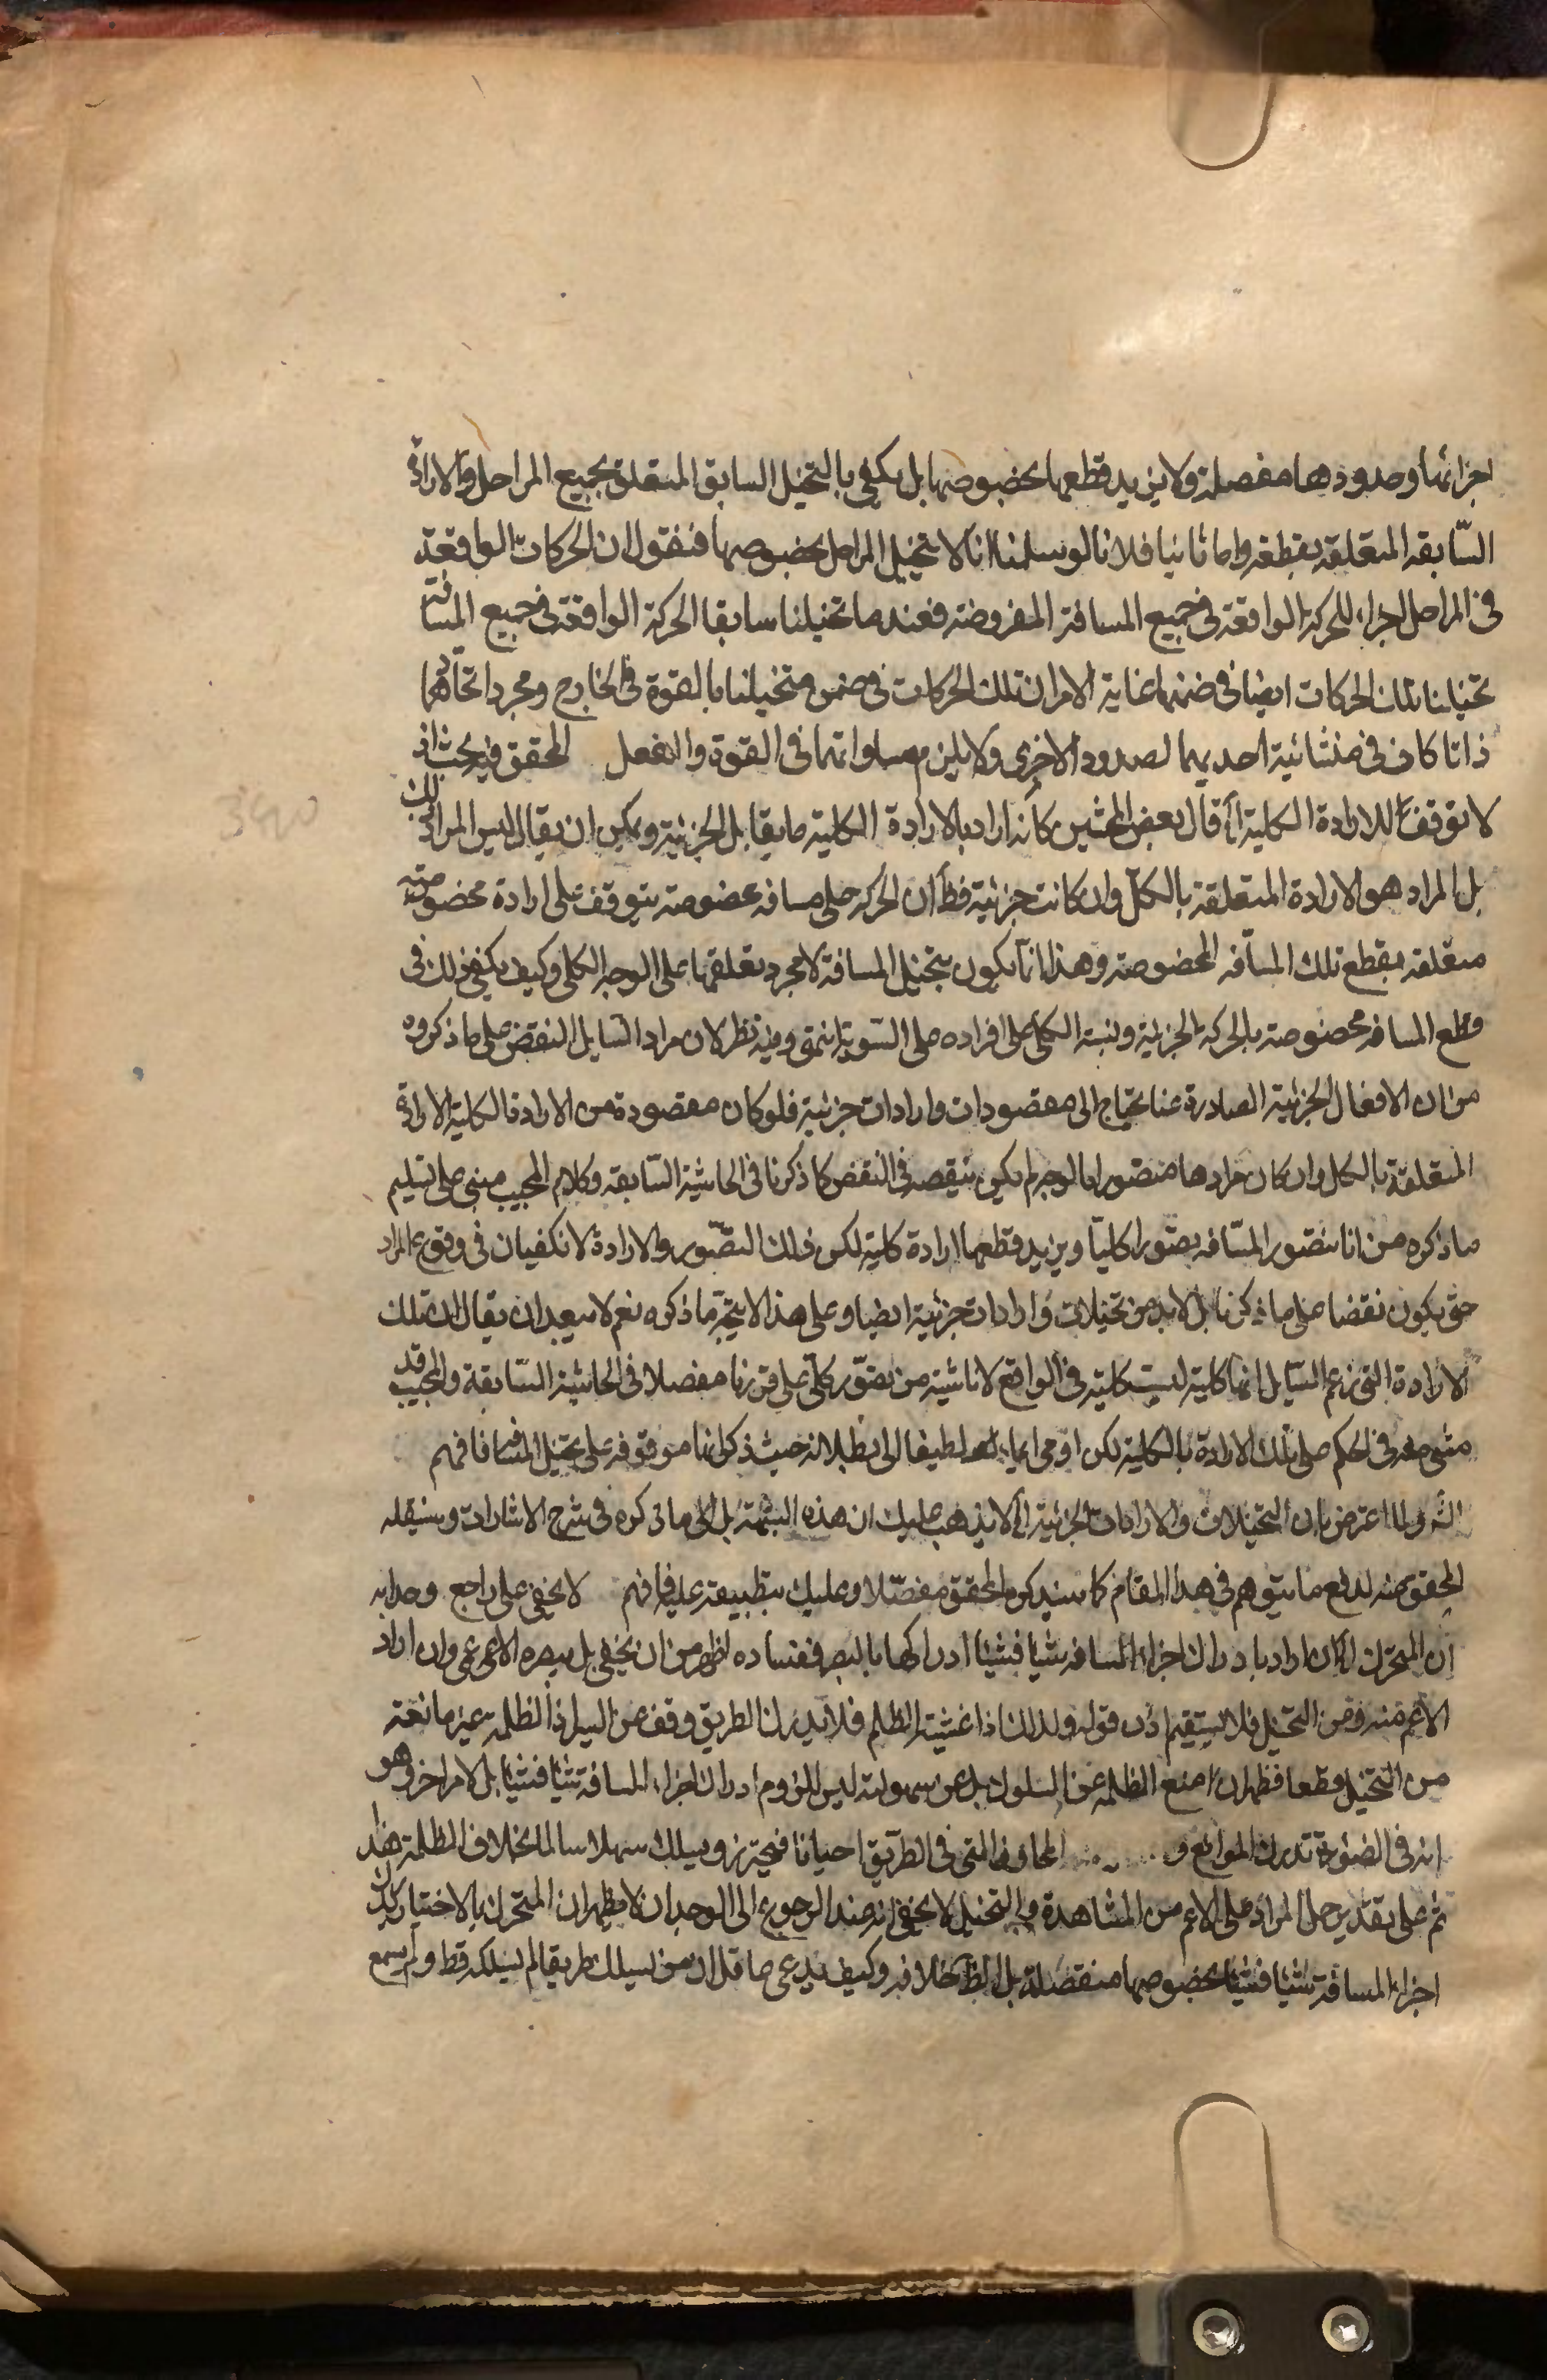 اجزائها وحدودها مفصلة ولا يزيد قطعها بخصوصها بل يكفي بالتخيل السابق المتعلق بجميع المراحل والارادة
السّابقه المتعلقه بقطعه واما ثانيا فلانا لو سلمنا انا لا نتخيل المراحل بخصوصها فنقول ان الحركات الواقعة
في المراحل اجزاء للحركة الواقعة في جميع المسافة المفروضة فعند ما تخيلنا سابقا الحركة الواقعة في جميع المسافة
تخيلنا تلك الحركات ايضا في ضمنها غاية الامر ان تلك الحركات في ضمن متخيلنا بالقوة في الخارج ومجرد اتحادهما
ذاتا كاف في منشائية احديهما لصدور الاخرى ولا يلزم مساواتهما في القوة والفعل المحقق فيه بحث اذ
لا توقف للارادة الكلية اه قال بعض المحشين كانه اراد بالارادة الكلية ما يقابل الجزئية ويمكن ان يقال ليس المراد ذلك
بل المراد هو الارادة المتعلقة بالكل وان كانت جزئية فظ ان الحركه على مسافه مخصوصة يتوقف على ارادة مخصوصة
متعلقه بقطع تلك المسافه المخصوصة وهذا انما يكون بتخيل المسافة لا مجرد تعلقها على الوجه الكلى وكيف يكفى ذلك في
قطع المسافه مخصوصة بالحركة الجزئية ونسبة الكلى على افراده على السّوية انتهى وفيه نظر لان مراد السايل النقض على ما ذكروه
من ان الافعال الجزئية الصادرة عنا يحتاج الى مقصودات وارادات جزئية فلو كان مقصودة من الارادة الكلية الارادة
المتعلقة بالكل وان كان مرادها متصورا بالوجه لم يكن بنقيصه في النقض كما ذكرنا في الحاشية السّابقه وكلام المجيب مبنى على تسليم
ما ذكره من انا نتصور المسّافه تصوّرا كليّا ويزيد قطعها ارادة كلية لكن ذلك التصّور والارادة لا تكفيان في وقوع المراد
حتى يكون نقضا على ما ذكرنا بل لابد من تخيلات وارادات جزئية ايضا وعلى هذا لا يتجه ما ذكره نعم لا يبعد ان يقال ان تلك
الارادة التى زعم السّايل انها كلية ليست كلية في الواقع لا ناشية من تصوّر كلّى على ما قررنا مفصلا في الحاشية السّابقة والمجيب قد
مشى معه في الحكم على تلك الارادة بالكلية لكن اومى ايماء لطيفا الى بطلانه حيث ذكر انها موقوفه على تخيل المسافة فافهم
الشّ ولما اعترض بان التخيلات والارادات الجزئية اه لا يذهب عليك ان هذه الشبهة بل الى ما ذكره في شرح الاشارات وسينقله
المحقق عنه لدفع ما يتوهم في هذا المقام كما سيذكره المحقق مفصّلا وعليك بتطبيقه عليه فافهم لا يخفى على راجع وجدانه
ان المتحرك ان كان اراد بادراك اجزاء المسافه شيئا فشيئا ادراكها بالبصر ففساده اظهر من ان يخفى بل يبصره الاعمى وان اراد
الاعم منه ومن التخيل فلا يستقيم اذن قوله ولذلك اذا غشيته الظلم فلا يدرك الطريق وقف عن السير اذ الظلمة غير مانعة
من التخيل قطعا فظهر ان منع الظلمه عن السلوك بل عن سهولته ليس للزوم ادراك اجزاء المسافة شيئا فشيئا بل لامر اخر وهو
انه في الضوء تدرك الموانع و المخاوف التى في الطريق احيانا فيحترز ويسلك سهلا سالما بخلاف الظلمة هذا
ثم على تقدير حمل المراد على الاعم من المشاهدة والتخيل لا يخفى انه عند الرجوع الى الوجدان لا يظهر ان المتحرك بالاختيار يدرك
اجزاء المسافة شيئا فشيئا بخصوصها منفصلة بل الظ خلافه وكيف يدعى عاقل ان من يسلك طريقا لم يسلكه قط ولم يسمع